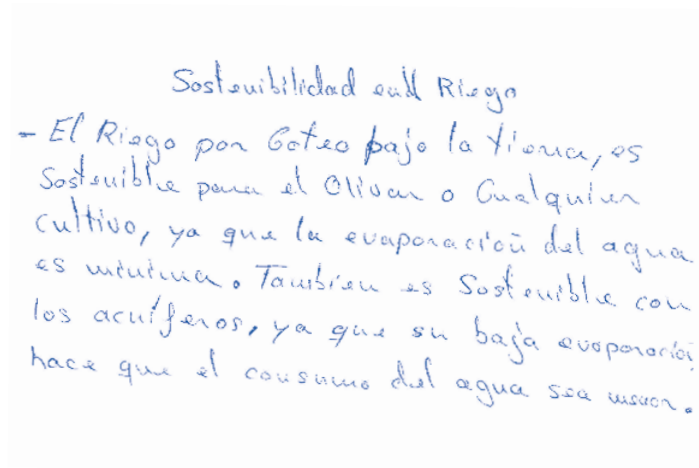 Sostenibilidad en el Riego
- El Riego por Goteo bajo la tierra, es
Sostenible para el Olivar o Cualquier
cultivo, ya que la evaporación del agua
es minima. Tambien es Sostenible con
los acuíferos, ya que su baja evaporación
hace que el consumo del agua sea menor.